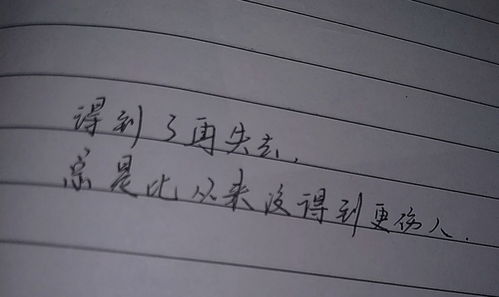 得到了再失去,
总是比从来没得到更伤人.